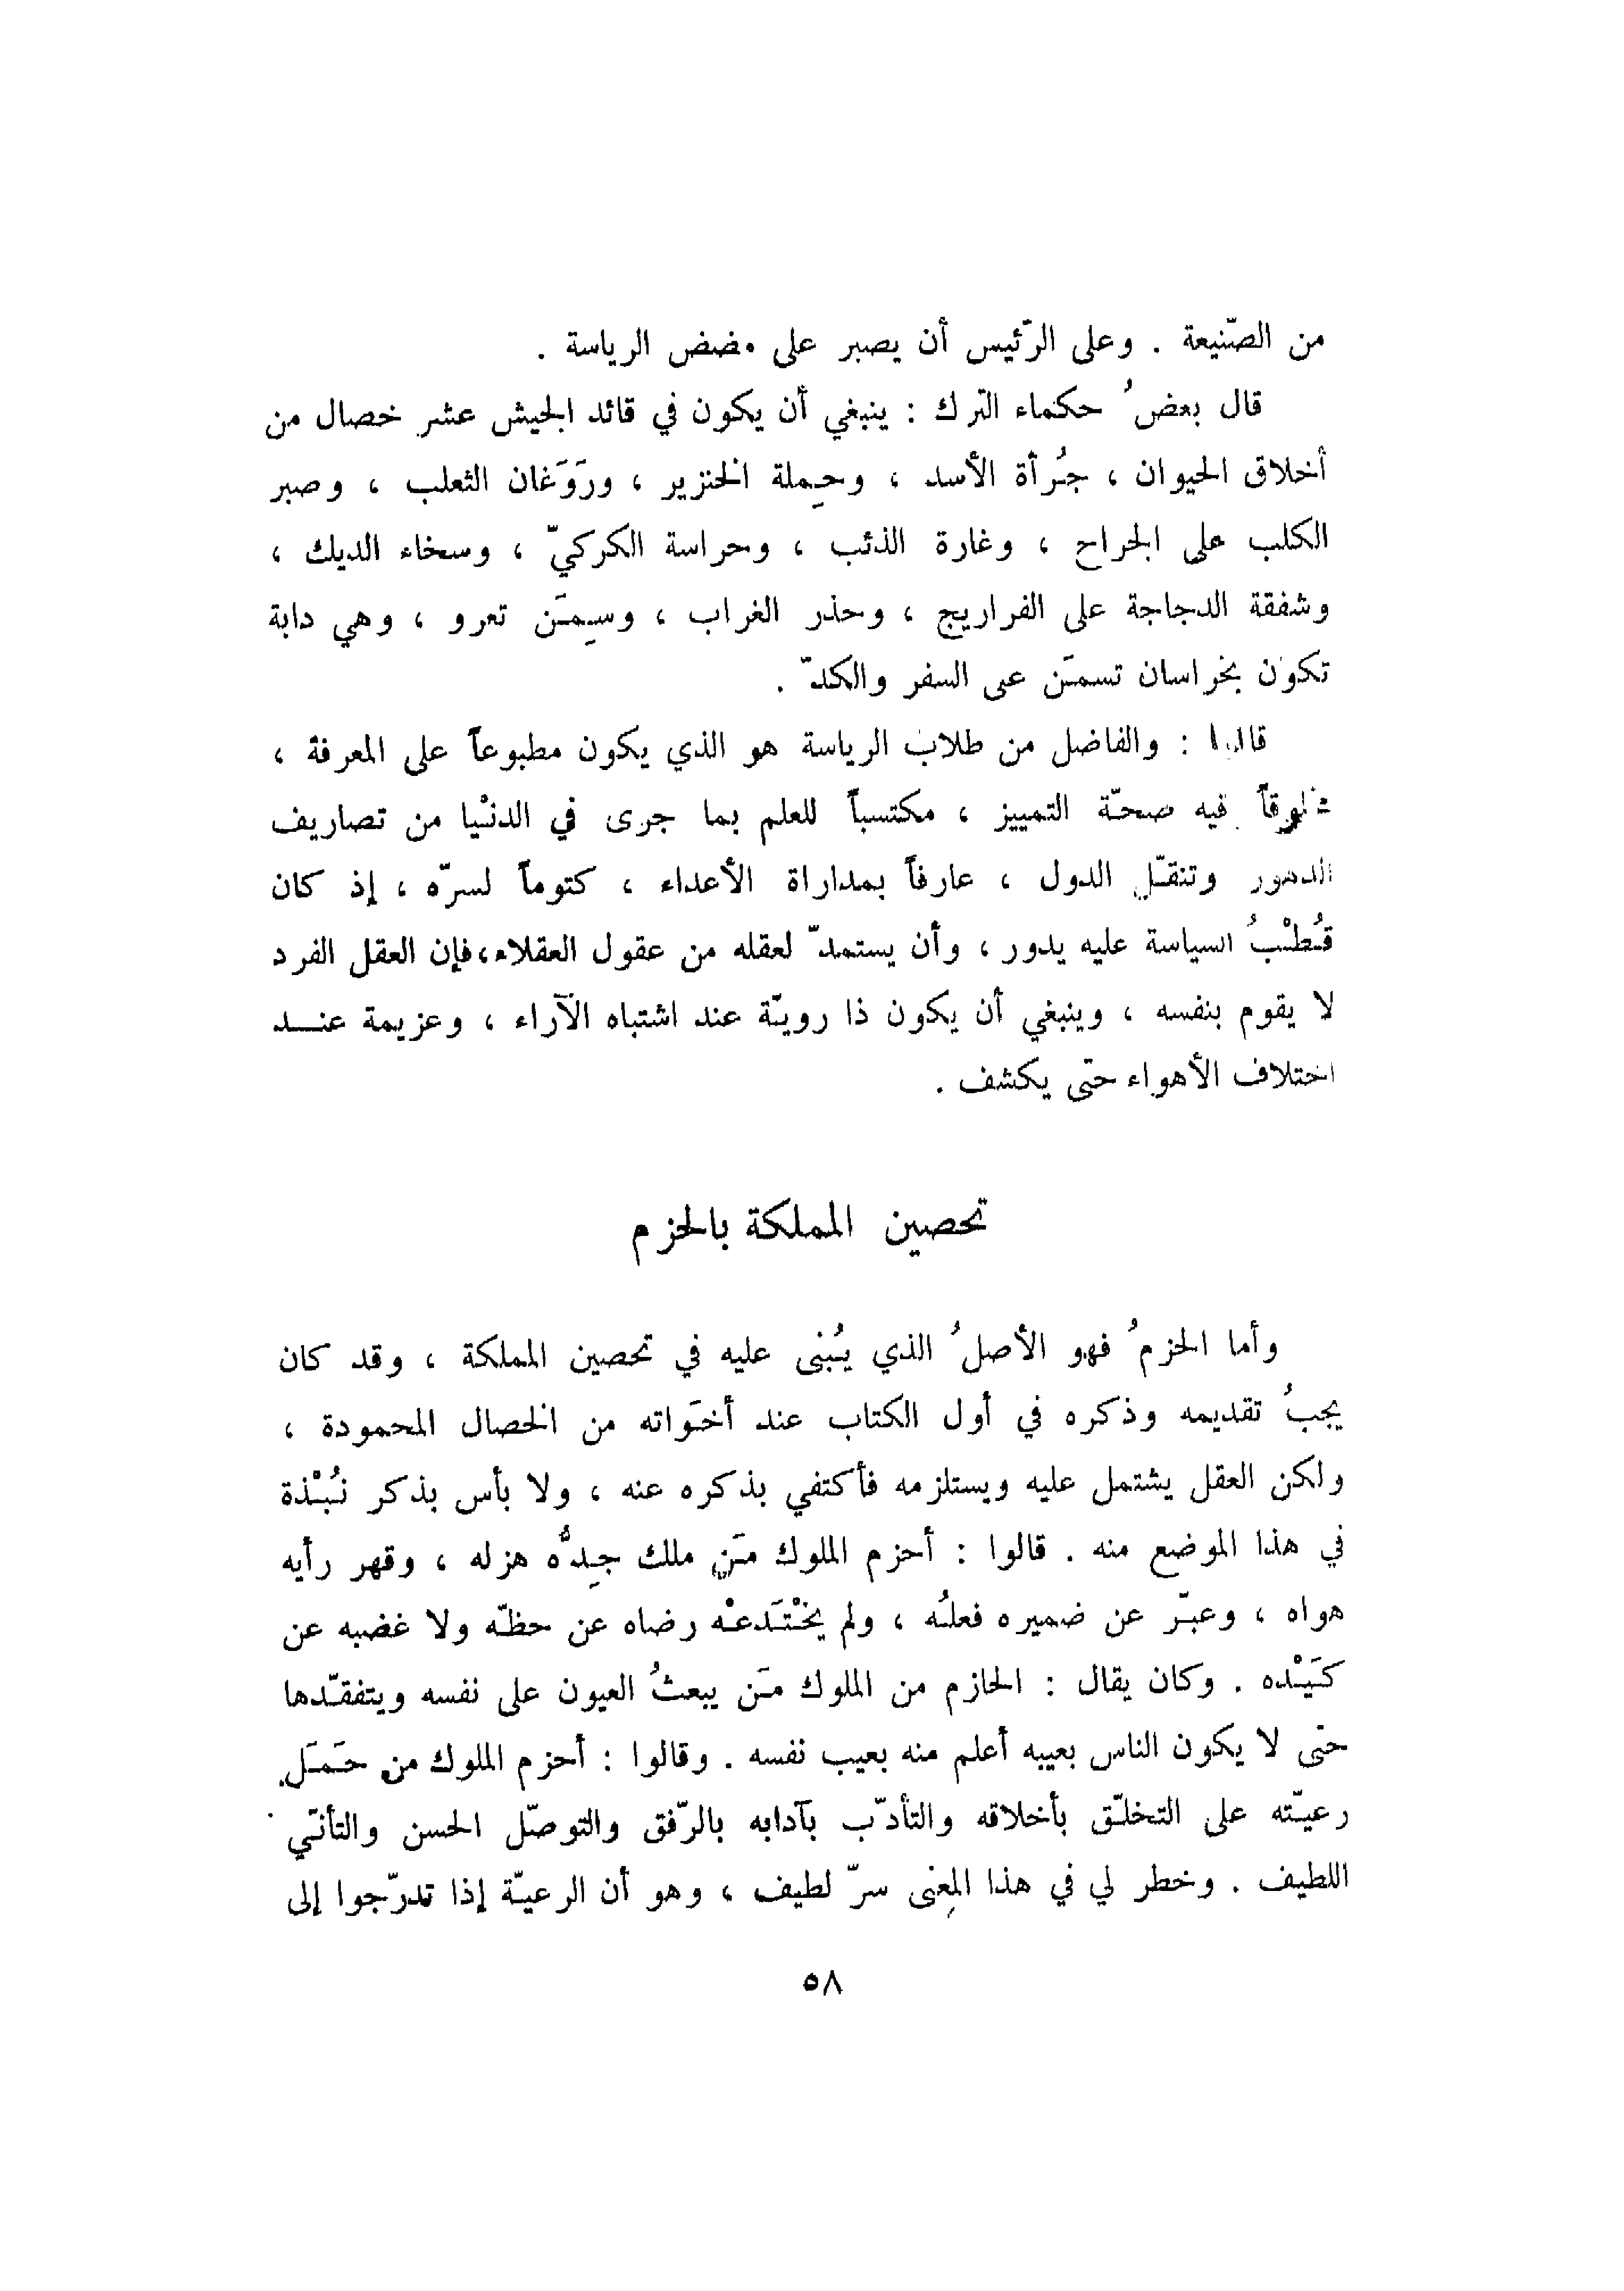 من الصّنيعة . وعلى الرّئيس أن يصبر على مضض الرياسة .
قال بعضُ حكماء الترك : ينبغي أن يكون في قائد الجيش عشر خصال من
أخلاق الحيوان ، جُرأة الأسد ، وحِملة الخنزير ، ورَوَغان الثعلب ، وصبر
الكلب على الجراح ، وغارة الذئب ، وحراسة الكركيّ ، وسخاء الديك ،
وشفقة الدجاجة على الفراريج ، وحذر الغراب ، وسِمَن تعرو ، وهي دابة
تكون بخراسان تسمَن على السفر والكدّ .
قالوا : والفاضل من طلاب الرياسة هو الذي يكون مطبوعاً على المعرفة ،
مخلوقاً فيه صحّة التمييز ، مكتسباً للعلم بما جرى في الدنْيا من تصاريف
الدهور وتنقّل الدول ، عارفاً بمداراة الأعداء ، كتوماً لسرّه ، إذ كان
قُطْبُ السياسة عليه يدور ، وأن يستمدّ لعقله من عقول العقلاء، فإن العقل الفرد
لا يقوم بنفسه ، وينبغي أن يكون ذا رويّة عند اشتباه الآراء ، وعزيمة عنــد
اختلاف الأهواء حتى يكشف .
تحصين المملكة بالحزم
وأما الحزمُ فهو الأصلُ الذي يُبْنى عليه في تحصين المملكة ، وقد كان
يجبُ تقديمه وذكره في أول الكتاب عند أخَواته من الخصال المحمودة ،
ولكن العقل يشتمل عليه ويستلزمه فأكتفي بذكره عنه ، ولا بأس بذكر نُبْذة
في هذا الموضع منه . قالوا : أحزم الملوك مَن ملك جِدُّه هزله ، وقهر رأيه
هواه ، وعبّر عن ضميره فعلُه ، ولم يخْتَدعْه رضاه عن حظّه ولا غضبه عن
كَيْده . وكان يقال : الحازم من الملوك مَن يبعثُ العيون على نفسه ويتفقّدها
حتى لا يكون الناس بعيبه أعلم منه بعيب نفسه . وقالوا : أحزم الملوك من حَمَل
رعيّته على التخلّق بأخلاقه والتأدّب بآدابه بالرّفق والتوصّل الحسن والتأنّي
اللطيف . وخطر لي في هذا المعنى سرّ لطيف ، وهو أن الرعيّة إذا تدرّجوا إلى
٥٨